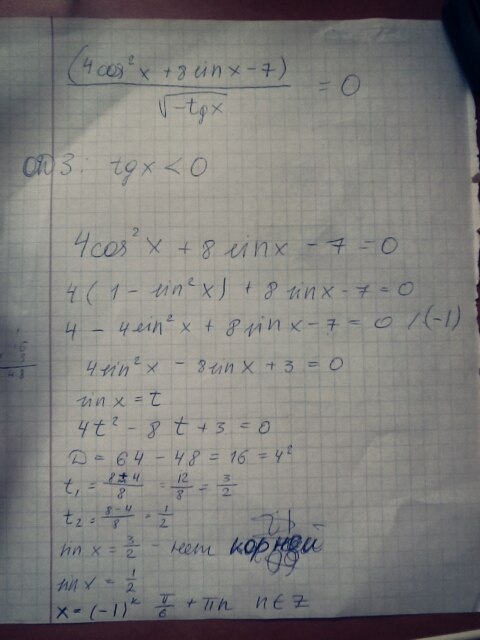 (4cos²x + 8sinx - 7)
√-tgx
= 0
ОДЗ: tgx < 0
4cos²x + 8sinx - 7 = 0
4(1 - sin²x) + 8sinx - 7 = 0
4 - 4sin²x + 8sinx - 7 = 0 /(-1)
4sin²x - 8sinx + 3 = 0
sinx = t
4t² - 8t + 3 = 0
D = 64 - 48 = 16 = 4²
t₁ = 8+4/8 = 12/8 = 3/2
t₂ = 8-4/8 = 1/2
sinx = 3/2 - нет корней
sinx = 1/2
x = (-1)ᵏ π/6 + πn n ∈ Z